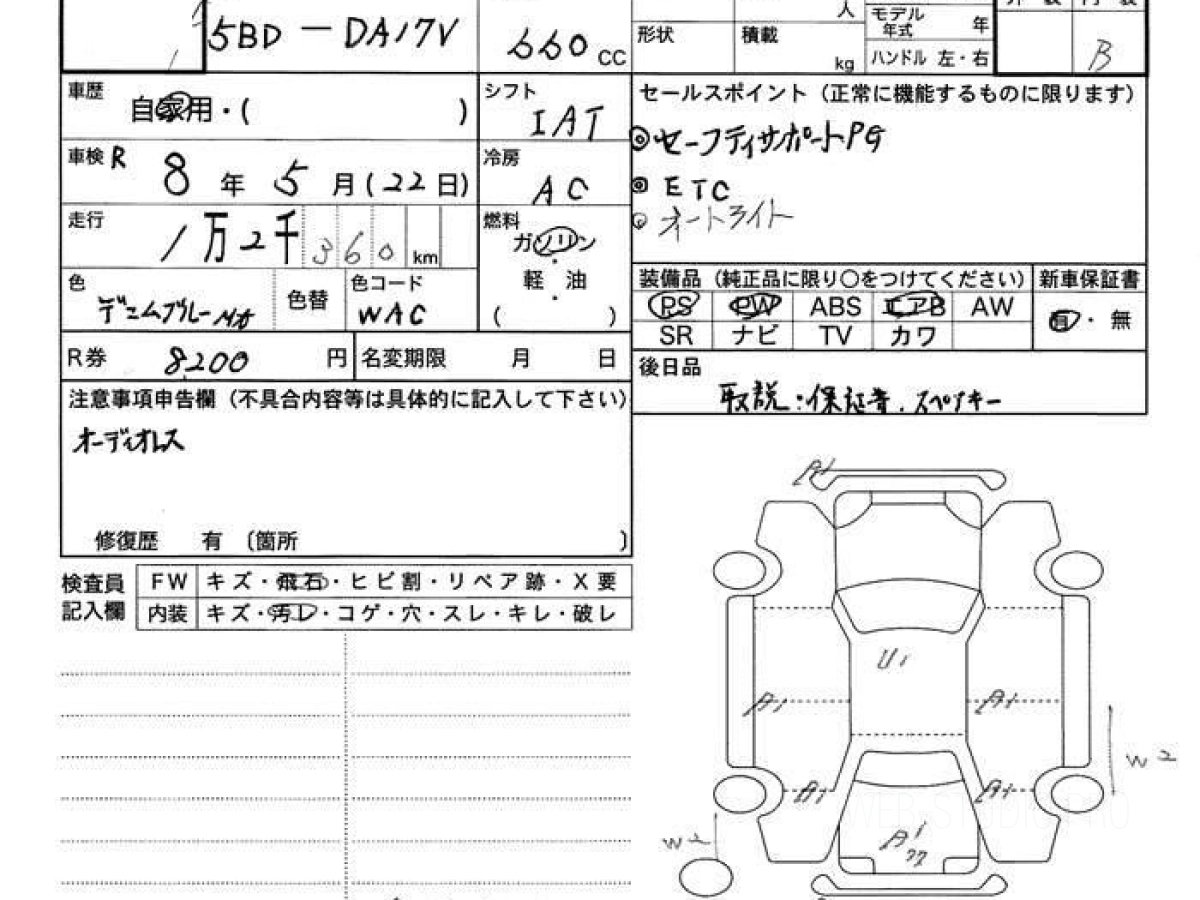 5BD-DA17V 660 CC
人
形状 積載 kg
モデル年式 年
ハンドル 左・右
B
車歴 自家用・( )
シフト IAT
車検 R 8年 5月(22日)
冷房 AC
走行 1万2千360km
燃料 ガソリン・軽油・( )
色 デニムブルーMA
色替
色コード WAC
R券 8200円
名変期限 月 日
セールスポイント(正常に機能するものに限ります)
◎セーフティサポートPG
◎ETC
◎オートライト
装備品(純正品に限り○をつけてください)
新車保証書
PS PW ABS エアB AW
有・無
SR ナビ TV カワ
後日品
取説・保証書.スペアキー
注意事項申告欄(不具合内容等は具体的に記入して下さい)
オーディオレス
修復歴 有〔箇所 〕
検査員記入欄
FW キズ・飛石・ヒビ割・リペア跡・X要
内装 キズ・汚し・コゲ・穴・スレ・キレ・破レ
A1
U1
A1 A1
W2
A1 A1
W2
A1
WEB-STUDIO